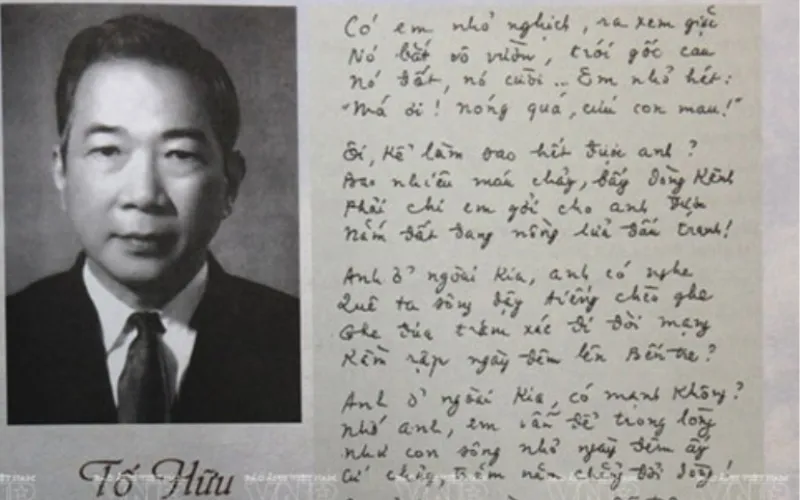 Có em nhỏ nghịch, ra xem giặc
Nó bắt vô vườn, trói gốc cau
Nó đốt, nó cười... Em nhỏ hét:
"Má ơi! nóng quá, cứu con mau!"
Ôi, kể làm sao hết được anh?
Bao nhiêu máu chảy, bấy dòng kênh
Phải chi em gởi cho anh được
Nắm đất đang nồng lửa đấu tranh!
Anh ở ngoài kia, anh có nghe
Quê ta sông dậy tiếng chèo ghe
Ghe đưa trăm xác đi đòi mạng
Rầm rập ngày đêm lên Bến tre?
Anh ở ngoài kia, có mạnh không?
Nhớ anh, em vẫn để trong lòng
Như con sông nhỏ ngày đêm ấy
Cứ chảy trăm năm chẳng đổi dòng!
Tố Hữu
BÁO ẢNH VIỆT NAM
VNP